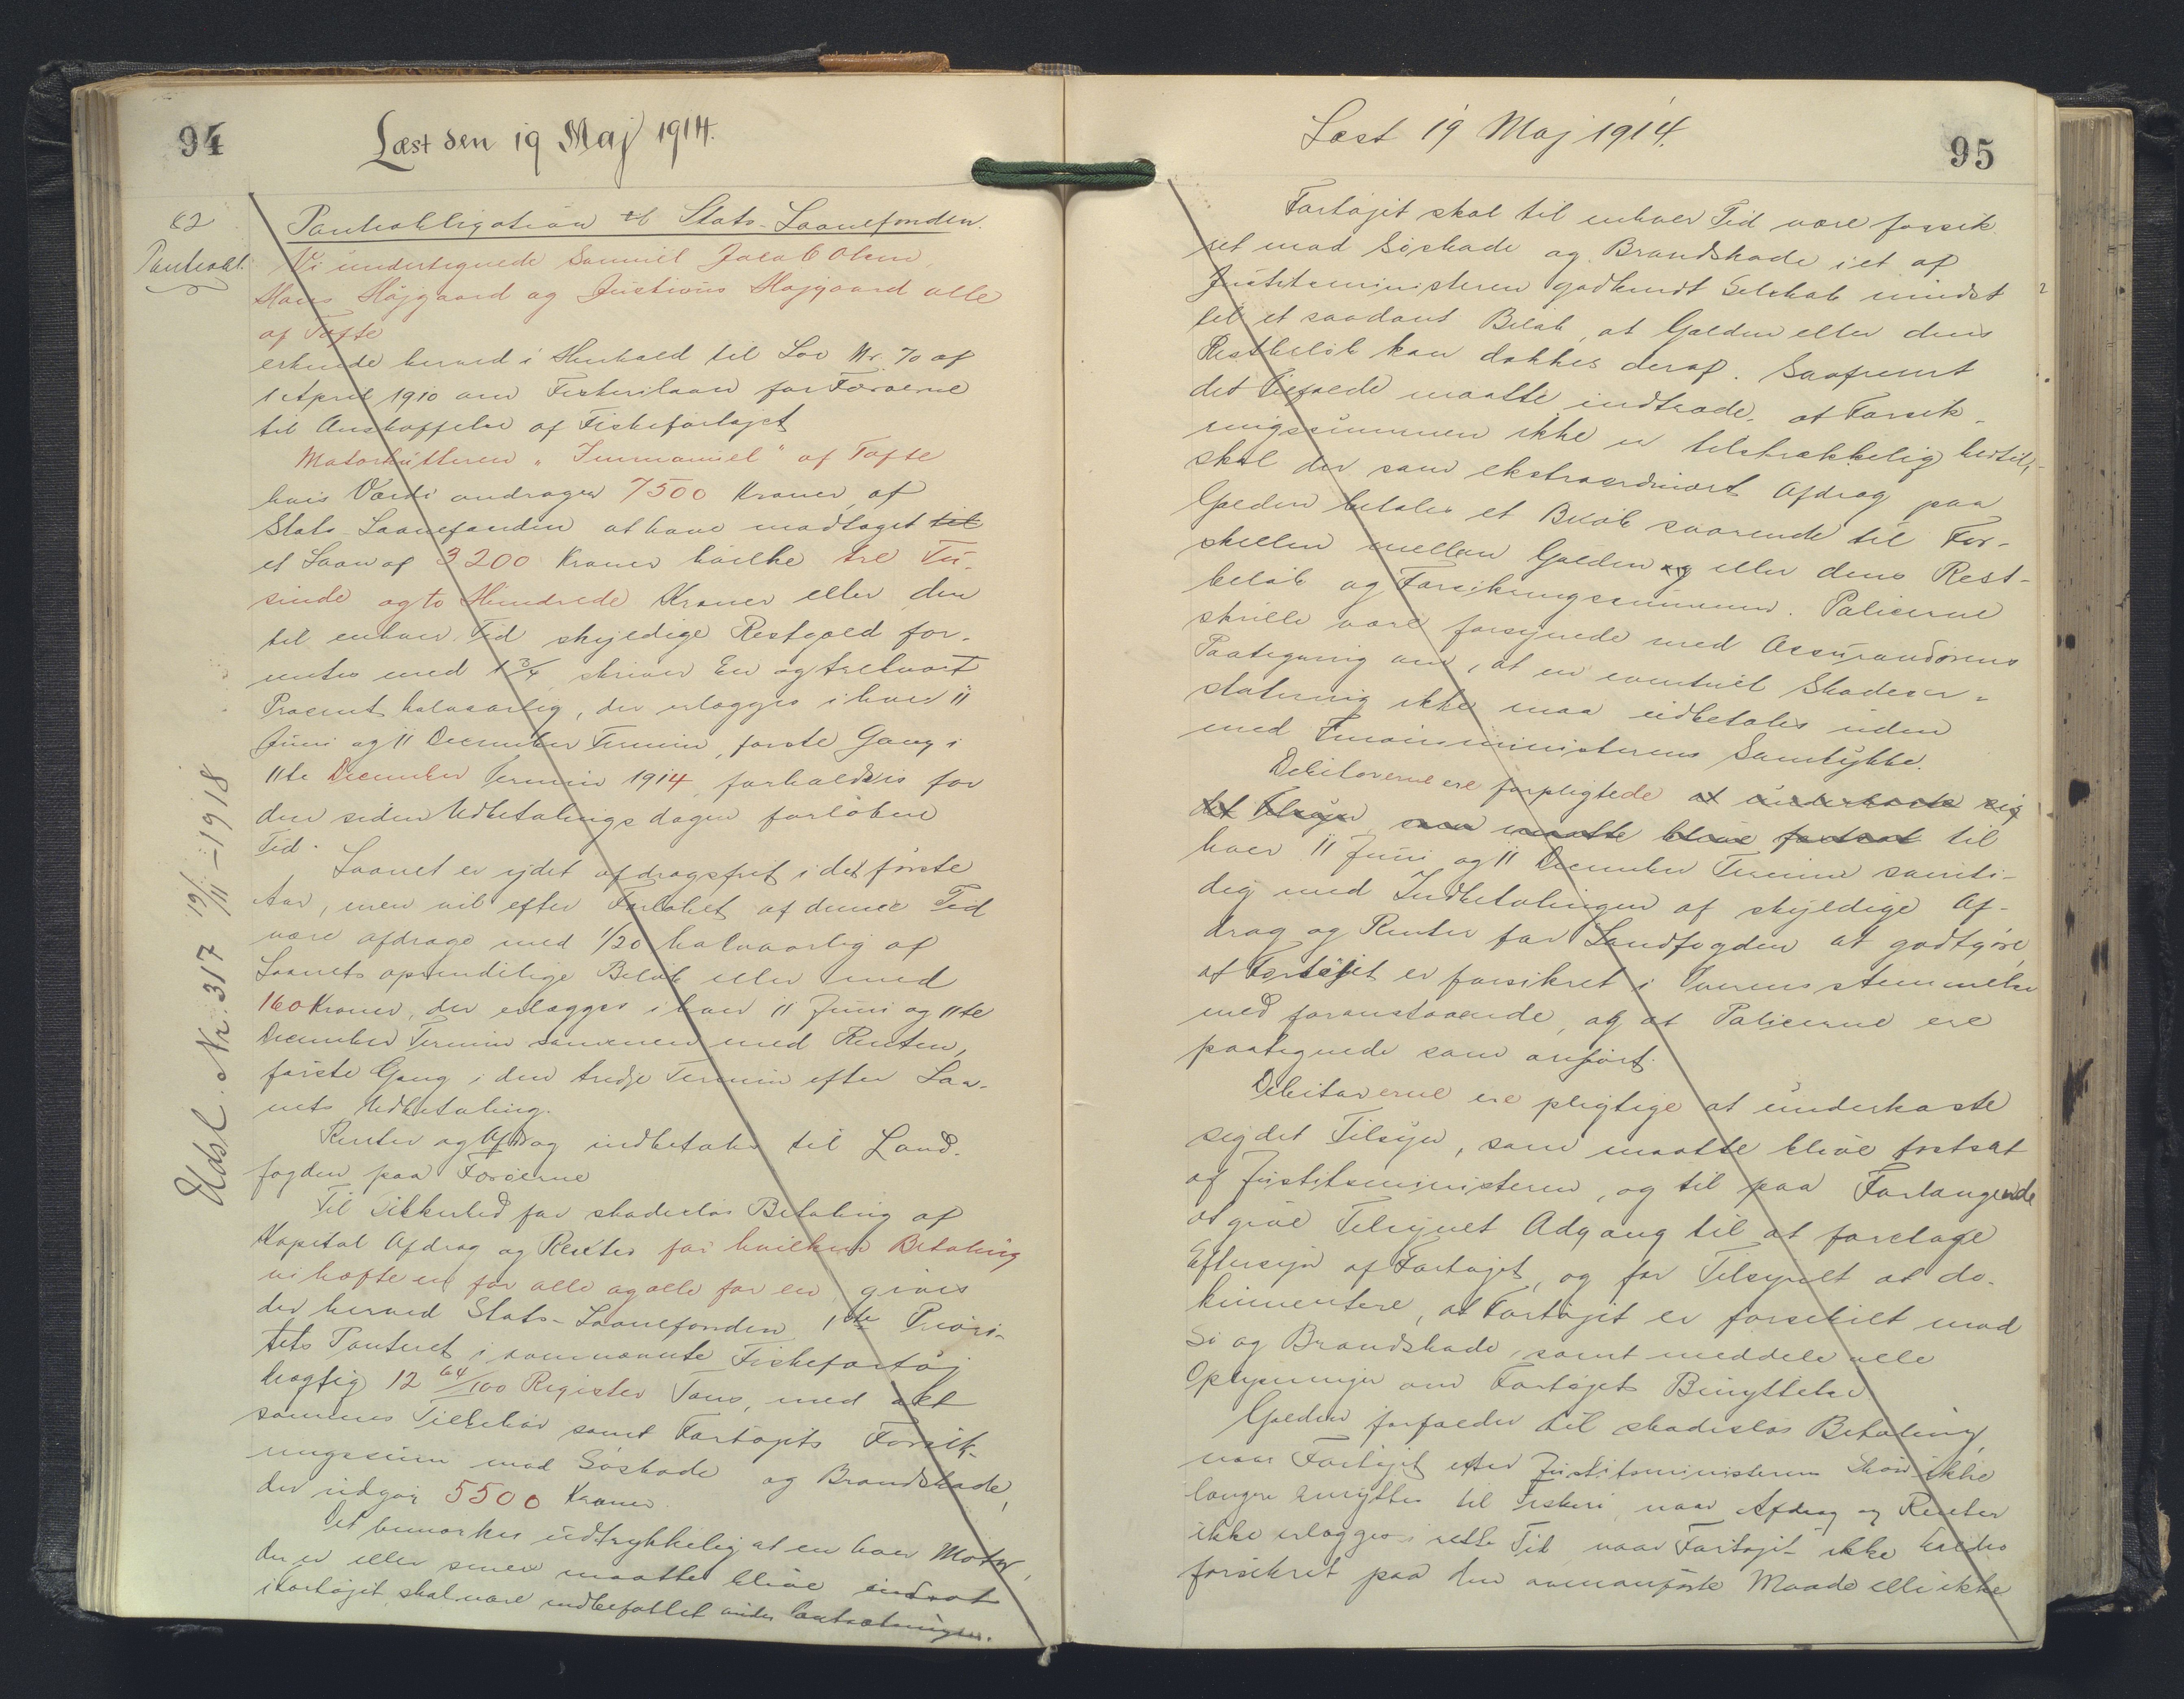 94
Læst den 19 Maj 1914.
62
Panteobl.
Panteobligation til Stats-Laanefonden.
Vi undertegnede Samuel Jacob Olsen
Hans Højgaard og Justinus Højgaard alle
af Tofte
erkende herved i Henhold til Lov Nr. 70 af
1 April 1910 om Fiskerilaan for Færøerne
til Anskaffelse af Fiskefartøjet
Motorkutteren "Immanuel" af Tofte
hvis Værdi andrager 7500 Kroner, af
Stats-Laanefonden at have modtaget til
et Laan af 3200 Kroner hvilke tre Tu-
sinde og to Hundrede Kroner eller den
til enhver Tid skyldige Restgæld for-
rentes med 1 3/4 skriver En og trekvart
Procent halvaarlig, der erlægges i hver 11
Juni og 11 December Termin, første Gang i
11te December Termin 1914 forholdsvis for
den siden Udbetalingsdagen forløbne
Tid.
Laanet er ydet afdragsfrit i det første
Aar, men vil efter Forløbet af denne Tid
være afdrage med 1/20 halvaarlig af
Laanets oprindelige Beløb eller med
160 Kroner, der erlægges i hver 11 Juni og 11te
December Termin sammen med Renten,
første Gang i den tredje Termin efter Laa-
nets Udbetaling.
Renter og Afdrag indbetales til Land-
fogden paa Færøerne
Til Sikkerhed for skadesløs Betaling af
Kapital Afdrag og Renter for hvilken Betaling
vi hæfte en for alle og alle for en, gives
der herved Stats-Laanefonden 1ste Priori-
tets Panteret i samme Fiskefartøj
drægtig 12 64/100 Register Tons, med alt
sammes Tilbehør samt Fartøjets Forsik-
ringssum mod Søskade og Brandskade,
der udgør 5500 Kroner.
Det bemærkes udtrykkelig at en hver Motor,
der er eller senere maatte blive indsat
i Fartøjet, skal være indbefattet under Pantsætningen.
Udsl. Nr. 317 19/11-1918
95
Læst 19 Maj 1914.
Fartøjet skal til enhver Tid være forsik-
ret mod Søskade og Brandskade i et af
Justitsministeren godkendt Selskab mindst
til et saadant Beløb, at Gælden eller dens
Restbeløb kan dækkes deraf. Saafremt
det Tilfælde maatte indtræde, at Forsik-
ringssummen ikke er tilstrækkelig hertil,
skal der som ekstraordinært Afdrag paa
Gælden betales et Beløb svarende til For-
skellen mellem Gælden og eller dens Rest-
beløb og Forsikringssummen. Policerne
skulle være forsynede med Assurandørens
Paategning om, at en eventuel Skadeser-
statning ikke maa udbetales uden
med Finansministerens Samtykke.
Debitorerne ere forpligtede at underkaste sig
det Tilsyn, som maatte blive fastsat til
hver 11 Juni og 11 December Termin samti-
dig med Indbetalingen af skyldige Af-
drag og Renter for Landfogden at godtgøre,
at Fartøjet er forsikret i Overensstemmelse
med foranstaaende, og at Policerne ere
paategnede som anført.
Debitorerne ere pligtige at underkaste
sig det Tilsyn, som maatte blive fastsat
af Justitsministeren, og til paa Forlangende
at give Tilsynet Adgang til at foretage
Eftersyn af Fartøjet, og for Tilsynet at do-
kumentere, at Fartøjet er forsikret mod
Sø og Brandskade, samt meddele alle
Oplysninger om Fartøjets Benyttelse
Gælden forfalder til skadesløs Betaling,
naar Fartøjet efter Justitsministerens Skøn ikke
længere benyttes til Fiskeri, naar Afdrag og Renter
ikke erlægges i rette Tid, naar Fartøjet ikke holdes
forsikret paa den ovenanførte Maade eller ikke